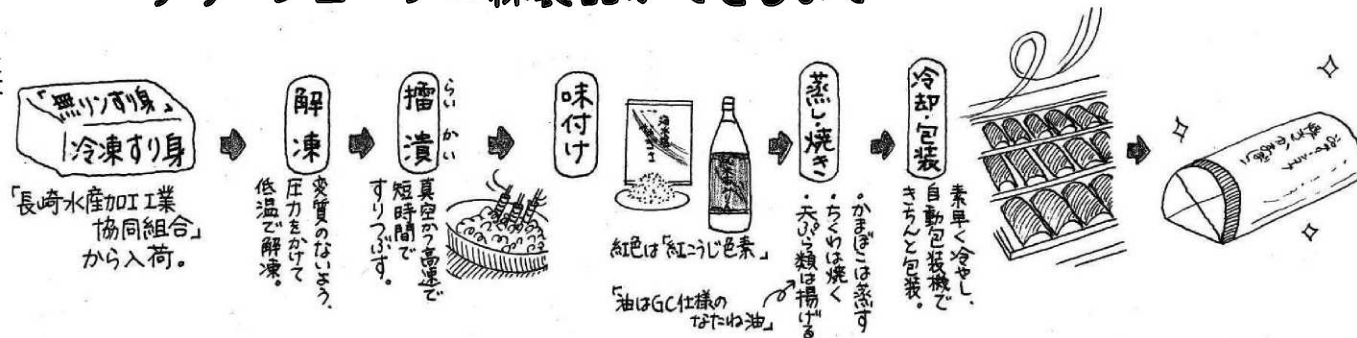 「無リンすり身」
冷凍すり身
「長崎水産加工工業
協同組合」
から入荷。
解凍
変質のないよう、
圧力をかけて
低温で解凍。
擂潰
らいかい
真空かつ高速で
短時間で
すりつぶす。
味付け
紅色は「紅こうじ色素」
「油はGC仕様の
なたね油」
蒸し・焼き
・かまぼこは蒸す
・ちくわは焼く
・天ぷら類は揚げる
冷却・包装
素早く冷やし、
自動包装機で
きちんと包装。